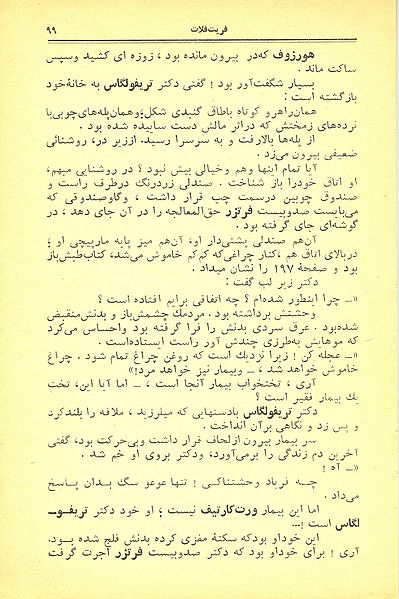 فریت‌فلات
۹۹
هورزوف که‌در بیرون مانده بود ، زوزه ای کشید وسپس
ساکت ماند .
بسیار شگفت‌آور بود ! گفتی دکتر تریفولگاس به خانه‌خود
بازگشته است :
همان‌راهرو کوتاه باطاق گنبدی شکل؛وهمان‌پله‌های‌چوبی‌با
نرده‌های زمختش که دراثر مالش دست ساییده شده بود .
از پله‌ها بالارفت و به سرسرا رسید. اززیر در، روشنائی
ضعیفی بیرون می‌زد .
آیا تمام اینها وهم وخیالی بیش نبود ؟ در روشنایی مبهم،
او اتاق خودرا باز شناخت . صندلی زردرنگ درطرف راست و
صندوق چوبین درسمت چپ قرار داشت ، وگاوصندوقی که
می‌بایست صدوبیست فرتزر حق‌المعالجه را در آن جای دهد ، در
گوشه‌ای جای گرفته بود .
آن‌هم صندلی پشتی‌دار او، آن‌هم میز پایه مارپیچی او ؛
دربالای اتاق هم ،کنار چراغی‌که کم‌کم خاموش می‌شد، کتاب‌طبش‌باز
بود و صفحهٔ ۱۹۷ را نشان میداد .
دکتر زیر لب گفت :
«ــ چرا اینطور شده‌ام ؟ چه اتفاقی برایم افتاده است ؟
وحشتش برداشته بود . مردمك چشمش‌باز و بدنش‌منقبض
شده‌بود . عرق سردی بدنش را فرا گرفته بود واحساس می‌کرد
که موهایش به‌طرزی چندش آور راست ایستاده‌است .
«ــ عجله کن ! زیرا نزدیك است که روغن چراغ تمام شود . چراغ
خاموش خواهد شد ، ــ وبیمار نیز خواهد مرد!»
آری ، تختخواب بیمار آنجا است ، ــ اما آیا این، تخت
یك بیمار فقیر است ؟
دکتر تریفولگاس بادستهایی که میلرزید ، ملافه را بلندکرد
و پس زد و نگاهی برآن انداخت .
سر بیمار بیرون ازلحاف قرار داشت وبی‌حرکت بود، گفتی
آخرین دم زندگی را برمی‌آورد، ودکتر بروی او خم شد .
«ــ آه !
چـه فریاد وحشتناکـی ! تنها عوعو سگ بـدان پـاسخ
می‌داد .
اما این بیمار ورت‌کارتیف نیست ؛ او خود دکتر تریفـوــ
لگاس است !...
این خوداو بودکه سکتهٔ مغزی کرده بدنش فلج شده بـود.
آری ! برای خوداو بود که دکتر صدوبیست فرتزر اجرت گرفت